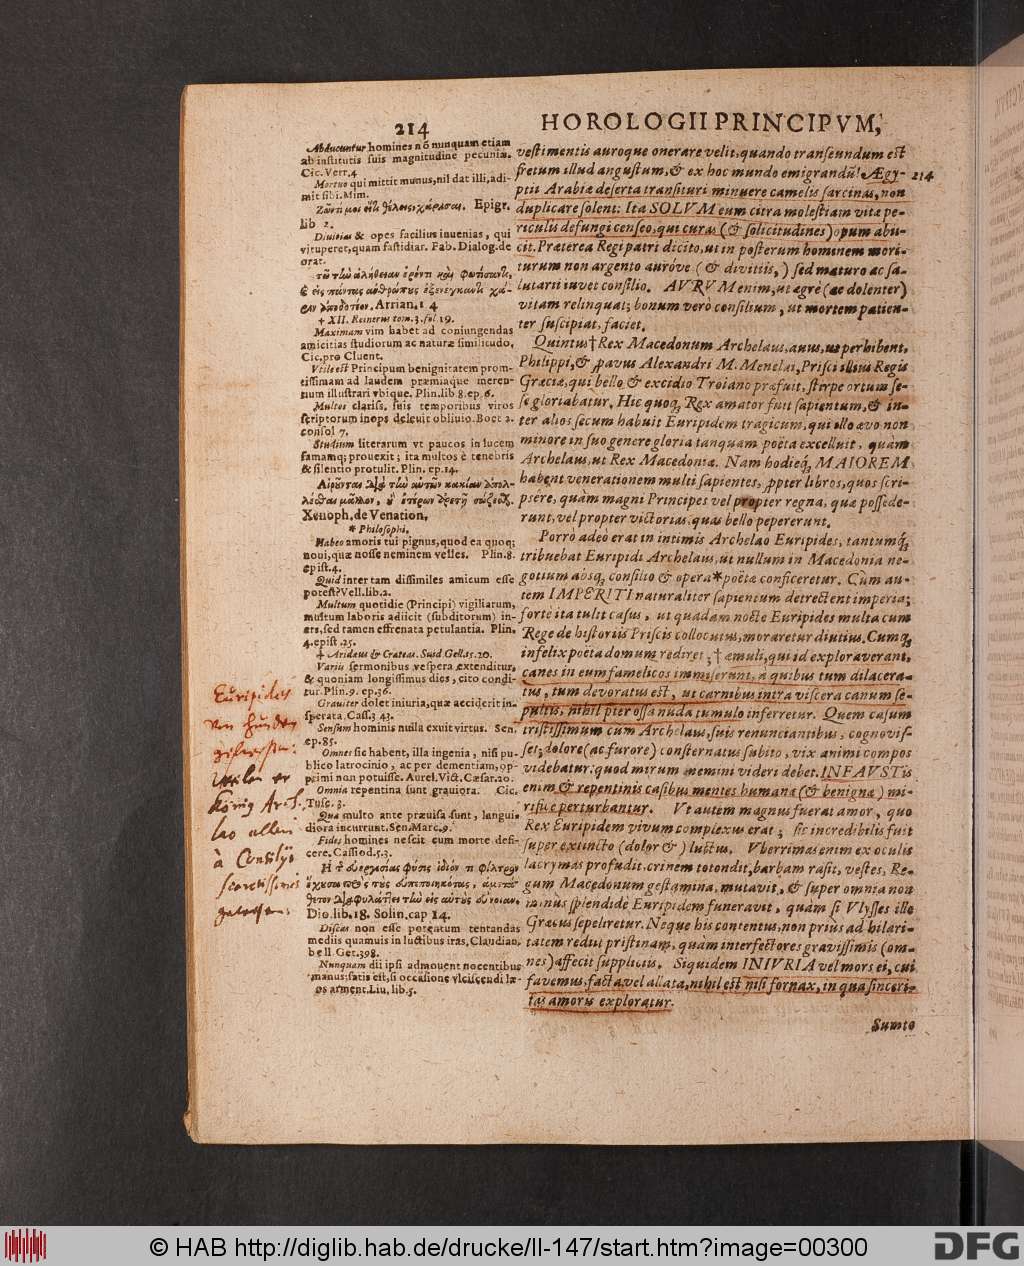 214
HOROLOGII PRINCIPVM,
Abducuntur homines nõ nunquam etiam
ab institutis suis magnitudine pecuniæ.
Cic. Verr. 4
Mortuo qui mittit munus, nil dat illi, adi-
mit sibi. Mim.
Epigr.
lib 2.
Diuitias & opes facilius inuenias, qui
vituperet, quam fastidiat. Fab. Dialog. de
orat.
Arrian. 1 4
† XII. Reinerus tom. 3. fol 19.
Maximam vim habet ad coniungendas
amicitias studiorum ac naturæ similitudo.
Cic. pro Cluent.
Vtile est Principum benignitatem prom-
tissimam ad laudem præmiaque meren-
tium illustrari vbique. Plin. lib 8. ep 6.
Multos clariss. suis temporibus viros
scriptorum inops deleuit obliuio. Boet 2.
consol 7.
Studium literarum vt paucos in lucem
famamq; prouexit; ita multos è tenebris
& silentio protulit. Plin. ep. 14.
Xenoph. de Venation.
* Philosophi.
Habeo amoris tui pignus, quod ea quoq;
noui, quæ nosse neminem velles. Plin. 8.
epist. 4.
Quid inter tam dissimiles amicum esse
potest? Vell. lib. 2.
Multum quotidie (Principi) vigiliarum,
multum laboris adiicit (subditorum) in-
ers, sed tamen effrenata petulantia. Plin.
4. epist. 25.
† Aridæus & Crateas. Suid Gell. 15. 20.
Variis sermonibus vespera extenditur,
& quoniam longissimus dies, cito condi-
tur. Plin. 9. ep. 36.
Grauiter dolet iniuria, quæ acciderit in-
sperata. Cass. 3 43.
Sensum hominis nulla exuit virtus. Sen.
ep. 85.
Omnes sic habent, illa ingenia, nisi pu-
blico latrocinio, ac per dementiam, op-
primi non potuisse. Aurel. Vict. Cæsar. 20.
Omnia repentina sunt grauiora. Cic.
Tusc. 3.
Qua multo ante præuisa sunt, langui-
diora incurrunt. Sen. Marc. 9.
Fides homines nescit cum morte defi-
cere. Cassiod. 5. 3.
Dio. lib. 18. Solin. cap 14.
Discas non esse potentum tentandas
mediis quamuis in luctibus iras, Claudian.
bell. Get. 398.
Nunquam dii ipsi admouent nocentibus
manus: satis est, si occasione vlciscendi læ-
os arment. Liu. lib. 5.
vestimentis auroque onerare velit, quando transeundum est
fretum illud angustum, & ex hoc mundo emigrandũ! Ægy-
214
ptii Arabiæ deserta transituri minuere camelis sarcinas, non
duplicare solent: Ita SOLVM eum citra molestiam vitæ pe-
riculis defungi censeo, qui curas (& solicitudines) opum abii-
cit. Præterea Regi patri dicito, ut in posterum hominem mori-
turum non argento auróve (& divitiis,) sed maturo ac sa-
lutarii iuvet consilio. AVRVM enim, ut ægrè (ac dolenter)
vitam relinquat; bonum verò consilium, ut mortem patien-
ter suscipiat, faciet.
Quintus † Rex Macedonum Archelaus, avus, ut perhibent,
Philippi, & pavus Alexandri M. Menelai, Prisci illius Regis
Græciæ, qui bello & excidio Troiano præfuit, stirpe ortum se-
se gloriabatur. Hic quoq; Rex amator fuit sapientum, & in-
ter alios secum habuit Euripidem tragicum, qui illo ævo non
minore in suo genere gloria tanquam poëta excelluit, quàm
Archelaus, ut Rex Macedoniæ. Nam hodieq; MAIOREM
habent venerationem multi sapientes, ꝓpter libros, quos scri-
psere, quàm magni Principes vel propter regna, quæ possede-
runt, vel propter victorias, quas bello pepererunt.
Porrò adeo erat in intimis Archelao Euripides, tantumq;
tribuebat Euripidi Archelaus, ut nullum in Macedonia ne-
gotium absq; consilio & opera * poëtæ conficeretur. Cùm au-
tem IMPERITI naturaliter sapientum detrectent imperia;
forte ita tulit casus, ut quadam nocte Euripides multa cum
Rege de historiis Priscis collocutus, moraretur diutius. Cumq;
infelix poëta domum rediret; † æmuli, qui id exploraverant,
canes in eum famelicos immiserunt, a quibus tum dilacera-
tus, tum devoratus est, ut carnibus intra viscera canum se-
pultis, nihil pter ossa nuda tumulo inferretur. Quem casum
tristissimum cum Archelaus, suis renunciantibus, cognovis-
set; dolore (ac furore) consternatus subito, vix animi compos
videbatur: quod mirum nemini videri debet. INFAVSTis
enim & repentinis casibus mentes humanæ (& benignæ) mi-
rifice perturbantur. Vt autem magnus fuerat amor, quo
Rex Euripidem vivum complexus erat; sic incredibilis fuit
super extincto (dolor &) luctus. Vberrimas enim ex oculis
lacrymas profudit, crinem totondit, barbam rasit, vestes, Re-
gum Macedonum gestamina, mutavit, & super omnia non
minùs splendidè Euripidem funeravit, quàm si Vlysses ille
Græcus sepeliretur. Neque his contentus, non priùs ad hilari-
tatem rediit pristinam, quàm interfectores gravissimis (om-
nes) affecit suppliciis. Siquidem INIVRIA vel mors ei, cui
favemus, facta vel allata, nihil est nisi fornax, in qua sinceri-
tas amoris exploratur.
Sumto
Euripides
von hunden
gefressen:
weilen er
König Arche
lao allein
à Consilijs
secretissimis
gewesen:
© HAB http://diglib.hab.de/drucke/ll-147/start.htm?image=00300
DFG